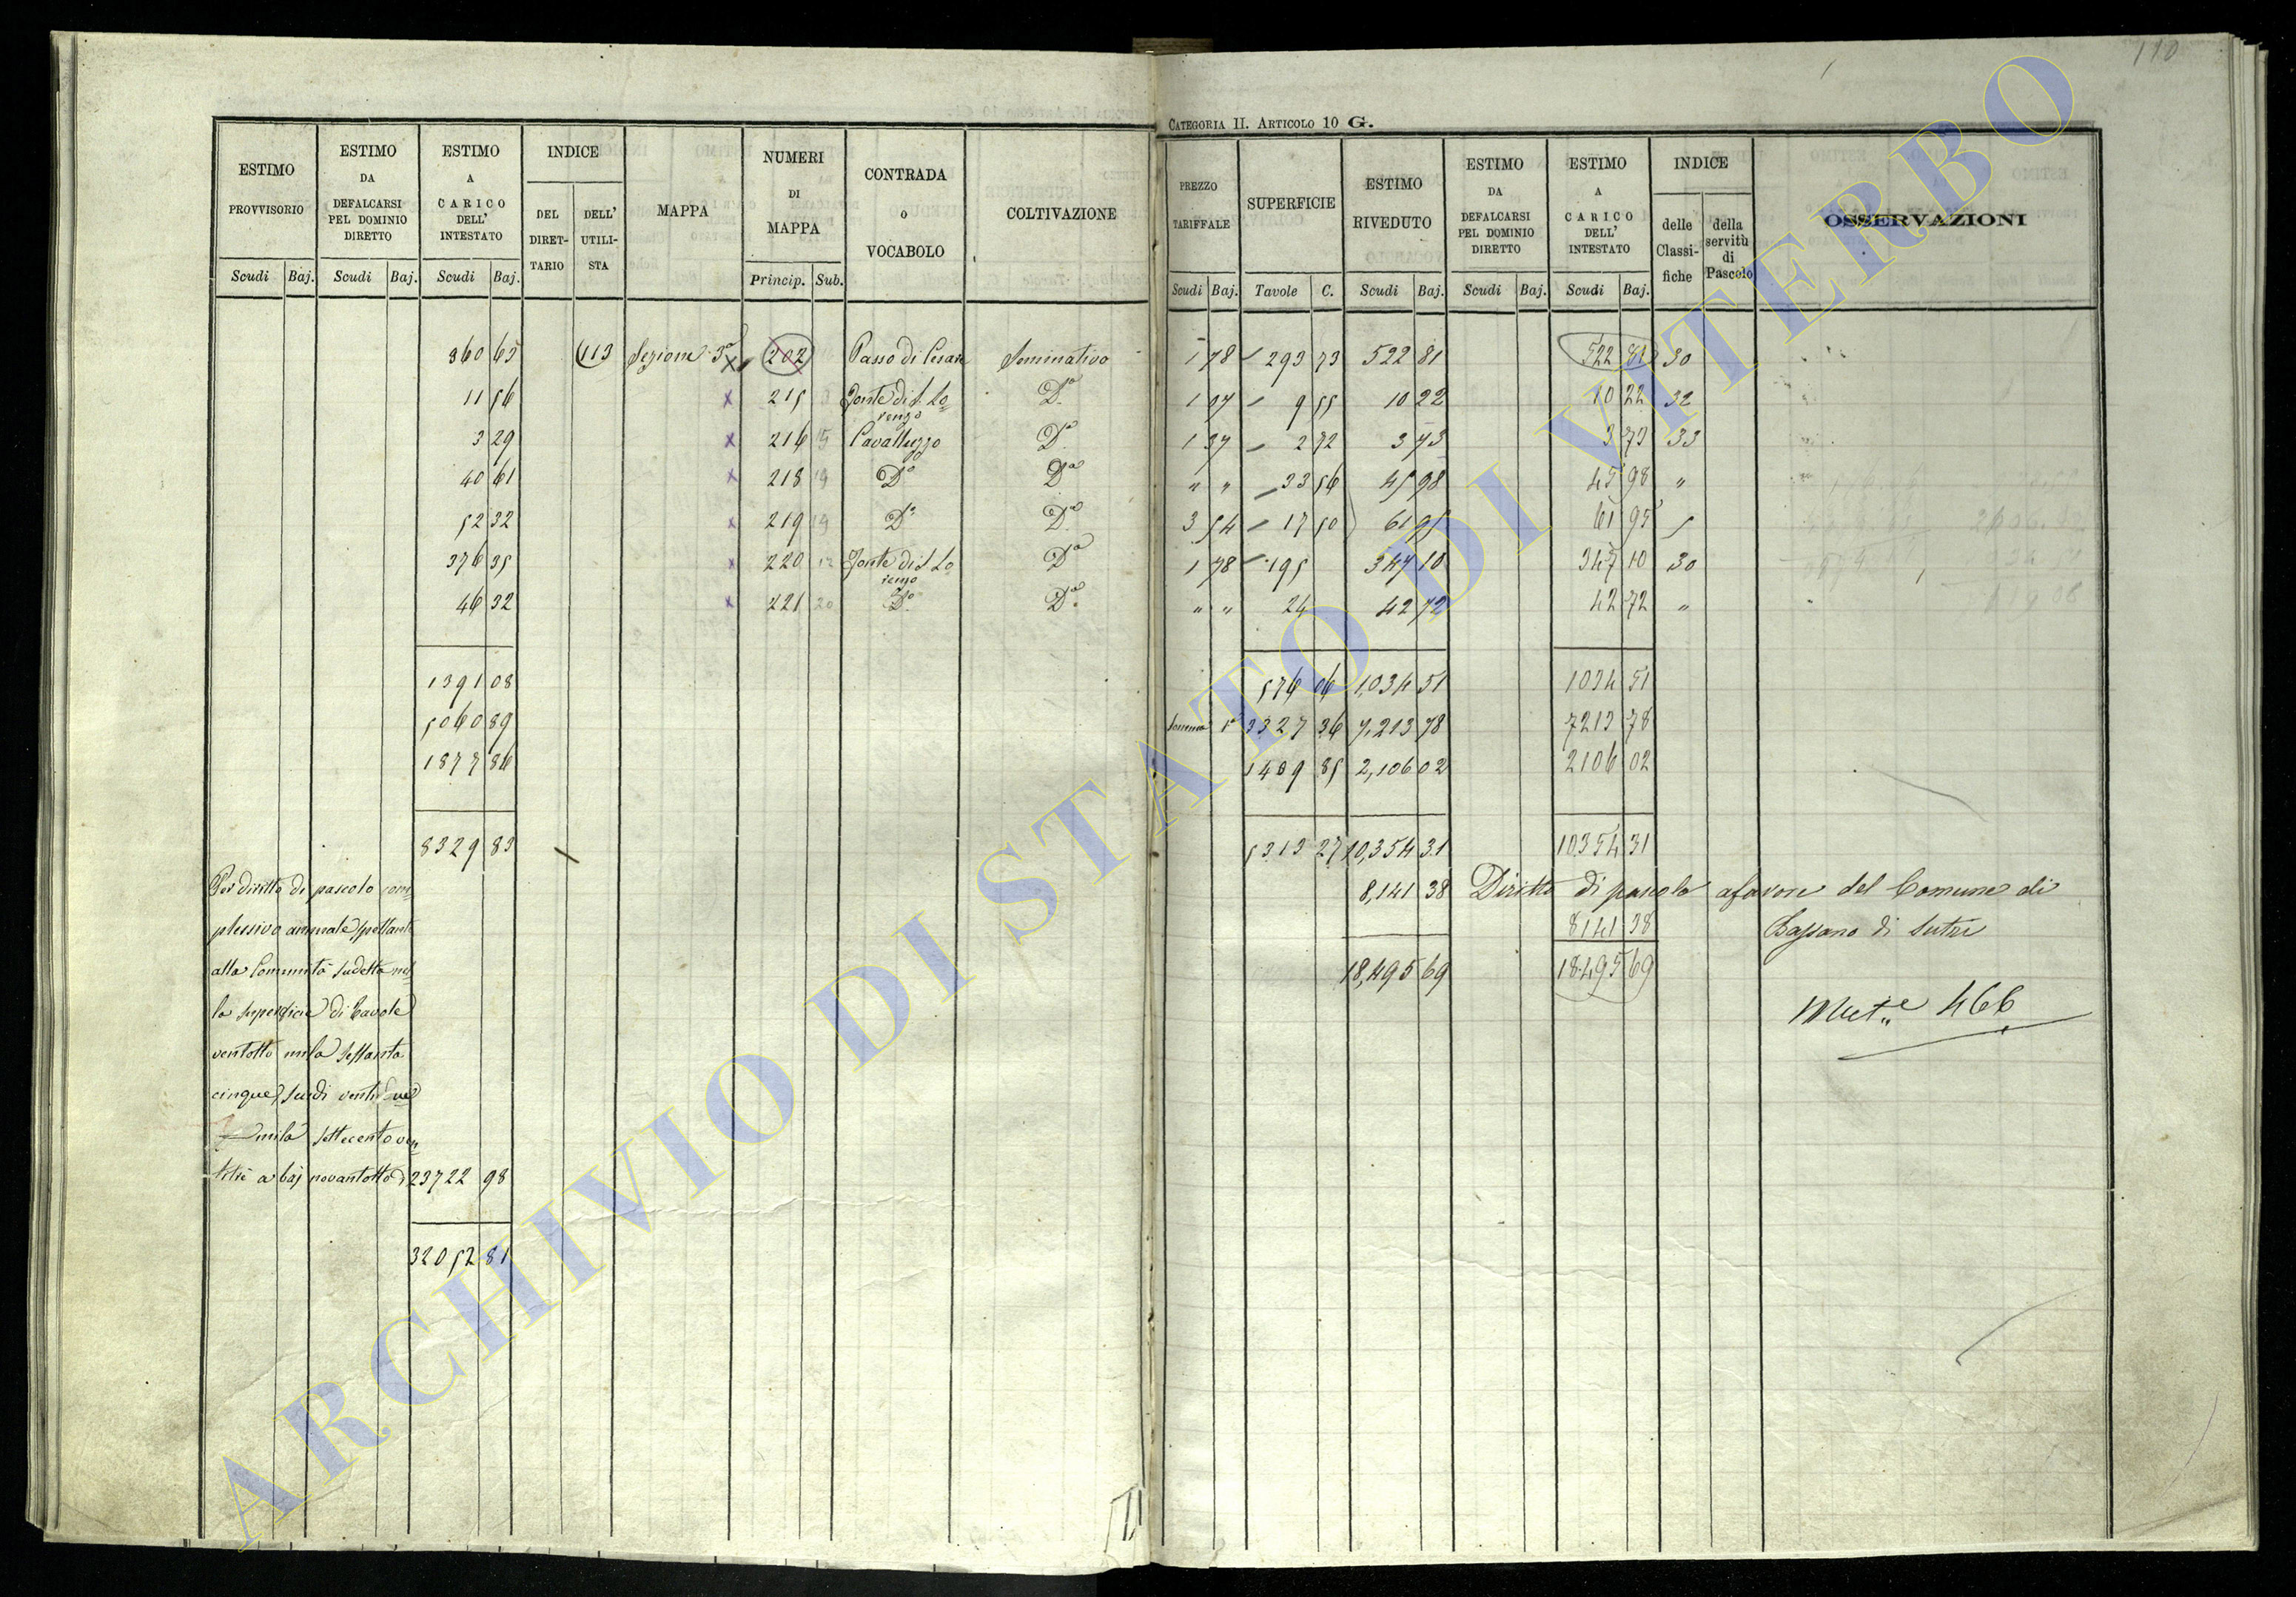 110
CATEGORIA II. ARTICOLO 10 G.
ESTIMO PROVVISORIO Scudi Baj.
ESTIMO DA DEFALCARSI PEL DOMINIO DIRETTO Scudi Baj.
ESTIMO A CARICO DELL' INTESTATO Scudi Baj.
INDICE DEL DIRETTARIO DELL' UTILISTA
MAPPA
NUMERI DI MAPPA Princip. Sub.
CONTRADA o VOCABOLO
COLTIVAZIONE
PREZZO TARIFFALE Scudi Baj.
SUPERFICIE Tavole C.
ESTIMO RIVEDUTO Scudi Baj.
ESTIMO DA DEFALCARSI PEL DOMINIO DIRETTO Scudi Baj.
ESTIMO A CARICO DELL' INTESTATO Scudi Baj.
INDICE delle Classifiche della servitù di Pascolo
OSSERVAZIONI
360 65 113 Sezione 3a x 202 Passo di Cesare Seminativo 1 78 293 73 522 81 522 81 30
11 56 x 215 Fonte di S. Lorenzo Do 1 07 9 55 10 22 10 22 32
3 29 x 216 15 Cavalluzzo Do 1 37 2 72 3 73 3 73 33
40 61 x 218 19 Do Do " " 33 56 45 98 45 98 "
52 32 x 219 19 Do Do 3 54 17 50 61 95 61 95 5
376 35 x 220 12 Fonte di S. Lorenzo Do 1 78 195 347 10 347 10 30
46 32 x 221 20 Do Do " " 24 42 72 42 72 "
1391 08 576 06 1,034 51 1034 51
5060 89 Somma 1a 3327 36 7,213 78 7213 78
1877 86 1409 85 2,106 02 2106 02
8329 83 5313 27 10,354 31 10354 31
Per diritto di pascolo com=
plessivo annuale spettante
alla Comunità sudetta nel=
la superficie di Tavole
ventotto mila sessanta
cinque, scudi ventidue
mila settecento ven
titre a baj novantotto 23722 98
32052 81
8,141 38 Diritto di pascolo a favore del Comune di
8141 38 Bassano di Sutri
18,495 69 18495 69
Mut.e 466
ARCHIVIO DI STATO DI VITERBO